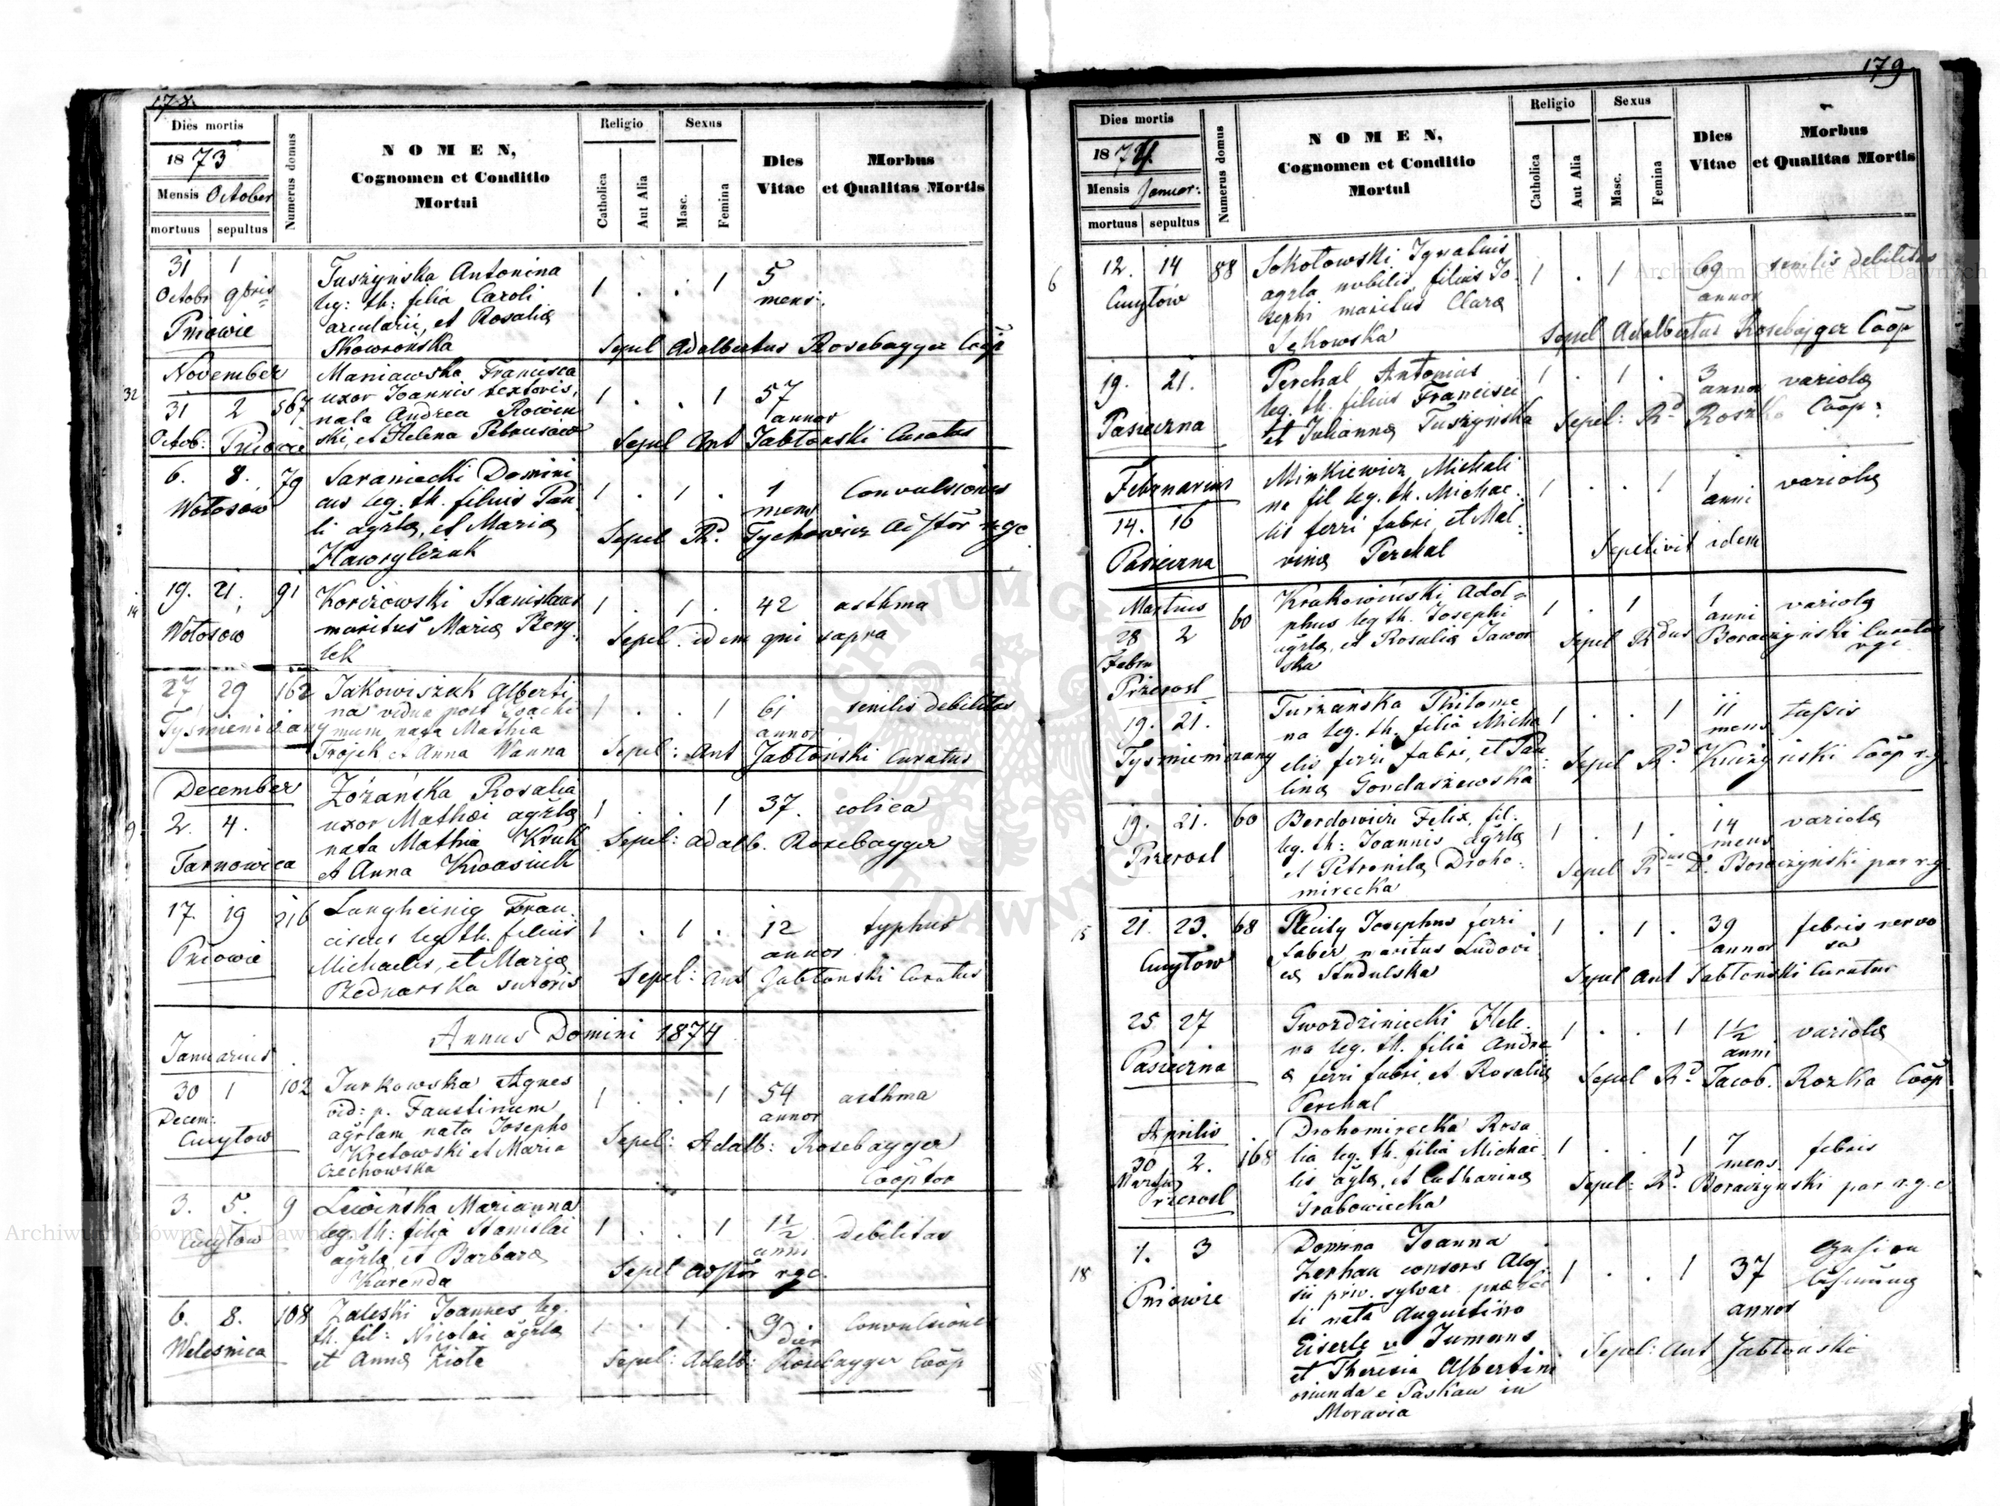 178.
Dies mortis
1873
Mensis October
mortuus sepultus
Numerus domus
NOMEN,
Cognomen et Conditio
Mortui
Religio
Catholica
Aut Alia
Sexus
Masc.
Femina
Dies
Vitae
Morbus
et Qualitas Mortis
31 1
Octobr 9bris
Pniowie
Tuszyńska Antonina
leg: th: filia Caroli
arcularii, et Rosalia
Skowrońska
1 . . 1 5
mens:
Sepel Adalbertus Rosebagger Coop
November
32
31 2 567
Octob: Pniowie
Maniawska Francisca
uxor Joannis textoris,
nata Andrea Rowin
ski, et Helena Petrusiow
1 . . 1 57
annor
Sepul Ant Jabłonski Curatus
6. 8. 79
Wołosow
Saraniecki Domini
cus leg. th. filius Pau
li agrlæ, et Maria
Hawrylczuk
1 . 1 . 1 Convulsiones
mens
Sepel Rd. Tychowicz Adstor r.g.c
14
19. 21. 91
Wołosów
Korczowski Stanislaus
maritus Maria
1 . 1 . 42 asthma
Sepel idem qui supra
27 29 162
Tyśmieniczany
Jakowiszak Alberti
na vidua post Joachi
mum, nata Mathia
Trojek et Anna Wanna
1 . . 1 61 senilis debilitas
annor
Sepel: Ant Jabłoński Curatus
December
9
2. 4.
Tarnowica
Zórańska Rosalia
uxor Mathæi agrlæ
nata Mathia Kruk
et Anna Kwasiuk
1 . . 1 37. colica
Sepel: Adalb. Rosebagger
17. 19 216
Pniowie
Langheinig Fran
ciscus leg. th. filius
Michaelis, et Maria
Bednarska sutoris
1 . 1 . 12 typhus
annor
Sepel: Ant Jabłonski Curatus
Annus Domini 1874
Januarius
30 1 102
Decem:
Cucyłow
Jurkowska Agnes
vid: p. Faustinum
agrlam nata Josepho
Kretowski et Maria
Czechowska
1 . . 1 54 asthma
annor
Sepel: Adalb: Rosebagger
Cooptor
3. 5. 9
Cucyłow
Lewińska Marianna
leg. th: filia Stanislai
agrlæ, et Barbara
Kurenda
1 . . 1 1½ debilitas
anni
Sepel Adstor r.g.c.
6. 8. 108
Welesnica
Zaleski Joannes leg.
th. fil: Nicolai agrlæ
et Anna Ziola
1 . 1 . 9 Convulsiones
dier
Sepel: Adalb: Rosebagger Coop
179
Dies mortis
1874
Mensis Januar:
mortuus sepultus
Numerus domus
NOMEN,
Cognomen et Conditio
Mortui
Religio
Catholica
Aut Alia
Sexus
Masc.
Femina
Dies
Vitae
Morbus
et Qualitas Mortis
6
12. 14 88
Cucyłów
Sokołowski Ignatius
agrla nobilis, filius Jo-
sephi maritus Clara
Sękowska
1 . 1 . 69 senilis debilitas
annor
Sepel Adalbertus Rosebagger Coop
19. 21.
Pasieczna
Perchal Antonius
leg. th. filius Francisci
et Julianna Tuszynska
1 . 1 . 3 variola
annor
Sepel: Rd Roszko Coop:
Februarius
14. 16
Pasieczna
Minkiewicz Michali
na fil leg. th. Michae
lis ferri fabri, et Mal-
vina Perchal
1 . . 1 1 variola
anni
Sepelivit idem
Martius
28 2 60
Febru
Przerosl
Krakowiński Adol-
phus leg th. Josephi
agrlæ, et Rosalia Jawor
ska
1 . 1 1 variola
anni
Sepel Rdus Boraczyński Curatus
r.g.c
19. 21.
Tysmieniczany
Turzańska Philome
na leg. th. filia Micha
elis ferri fabri, et Pau
lina Gondaszewska
1 . . 1 11 tussis
mens
Sepel Rd Coop r.g.
19. 21. 60
Przerosl
Bordowicz Felix, fil.
leg. th: Joannis agrlæ
et Petronila Droho-
mirecka
1 . 1 . 14 variola
mens
Sepel Rdus D. Boraczyński par r.g.
15
21. 23. 68
Cucyłow
Josephus ferri
faber maritus Ludovi
ca Andulska
1 . 1 . 39 febris nervo
annor sa
Sepel Ant Jabłoński Curatus
25 27
Pasieczna
Gwozdziniecki Hele-
na leg. th. filia Andre
æ ferri fabri, et Rosalia
Perchal
1 . . 1 1½ variola
anni
Sepel Rd Jacob. Rozka Coop
Aprilis
30 2. 168
Martii
Przerosl
Drohomirecka Rosa
lia leg. th. filia Michae
lis agrlæ, et Catharina
Grabowiecka
1 . . 1 7 febris
mens.
Sepel: Rd. Boraczyński par r.g.c
18
1. 3
Pniowie
Domina Joanna
Zerhau consors Aloy
sii priv. sylvar. præfec
ti nata Augustino
Eiserle v Tumans
et Theresia Albertini
oriunda e Paskau in
Moravia
1 . . 1 37
annor
Sepel: Ant Jabłoński
Archiwum Główne Akt Dawnych